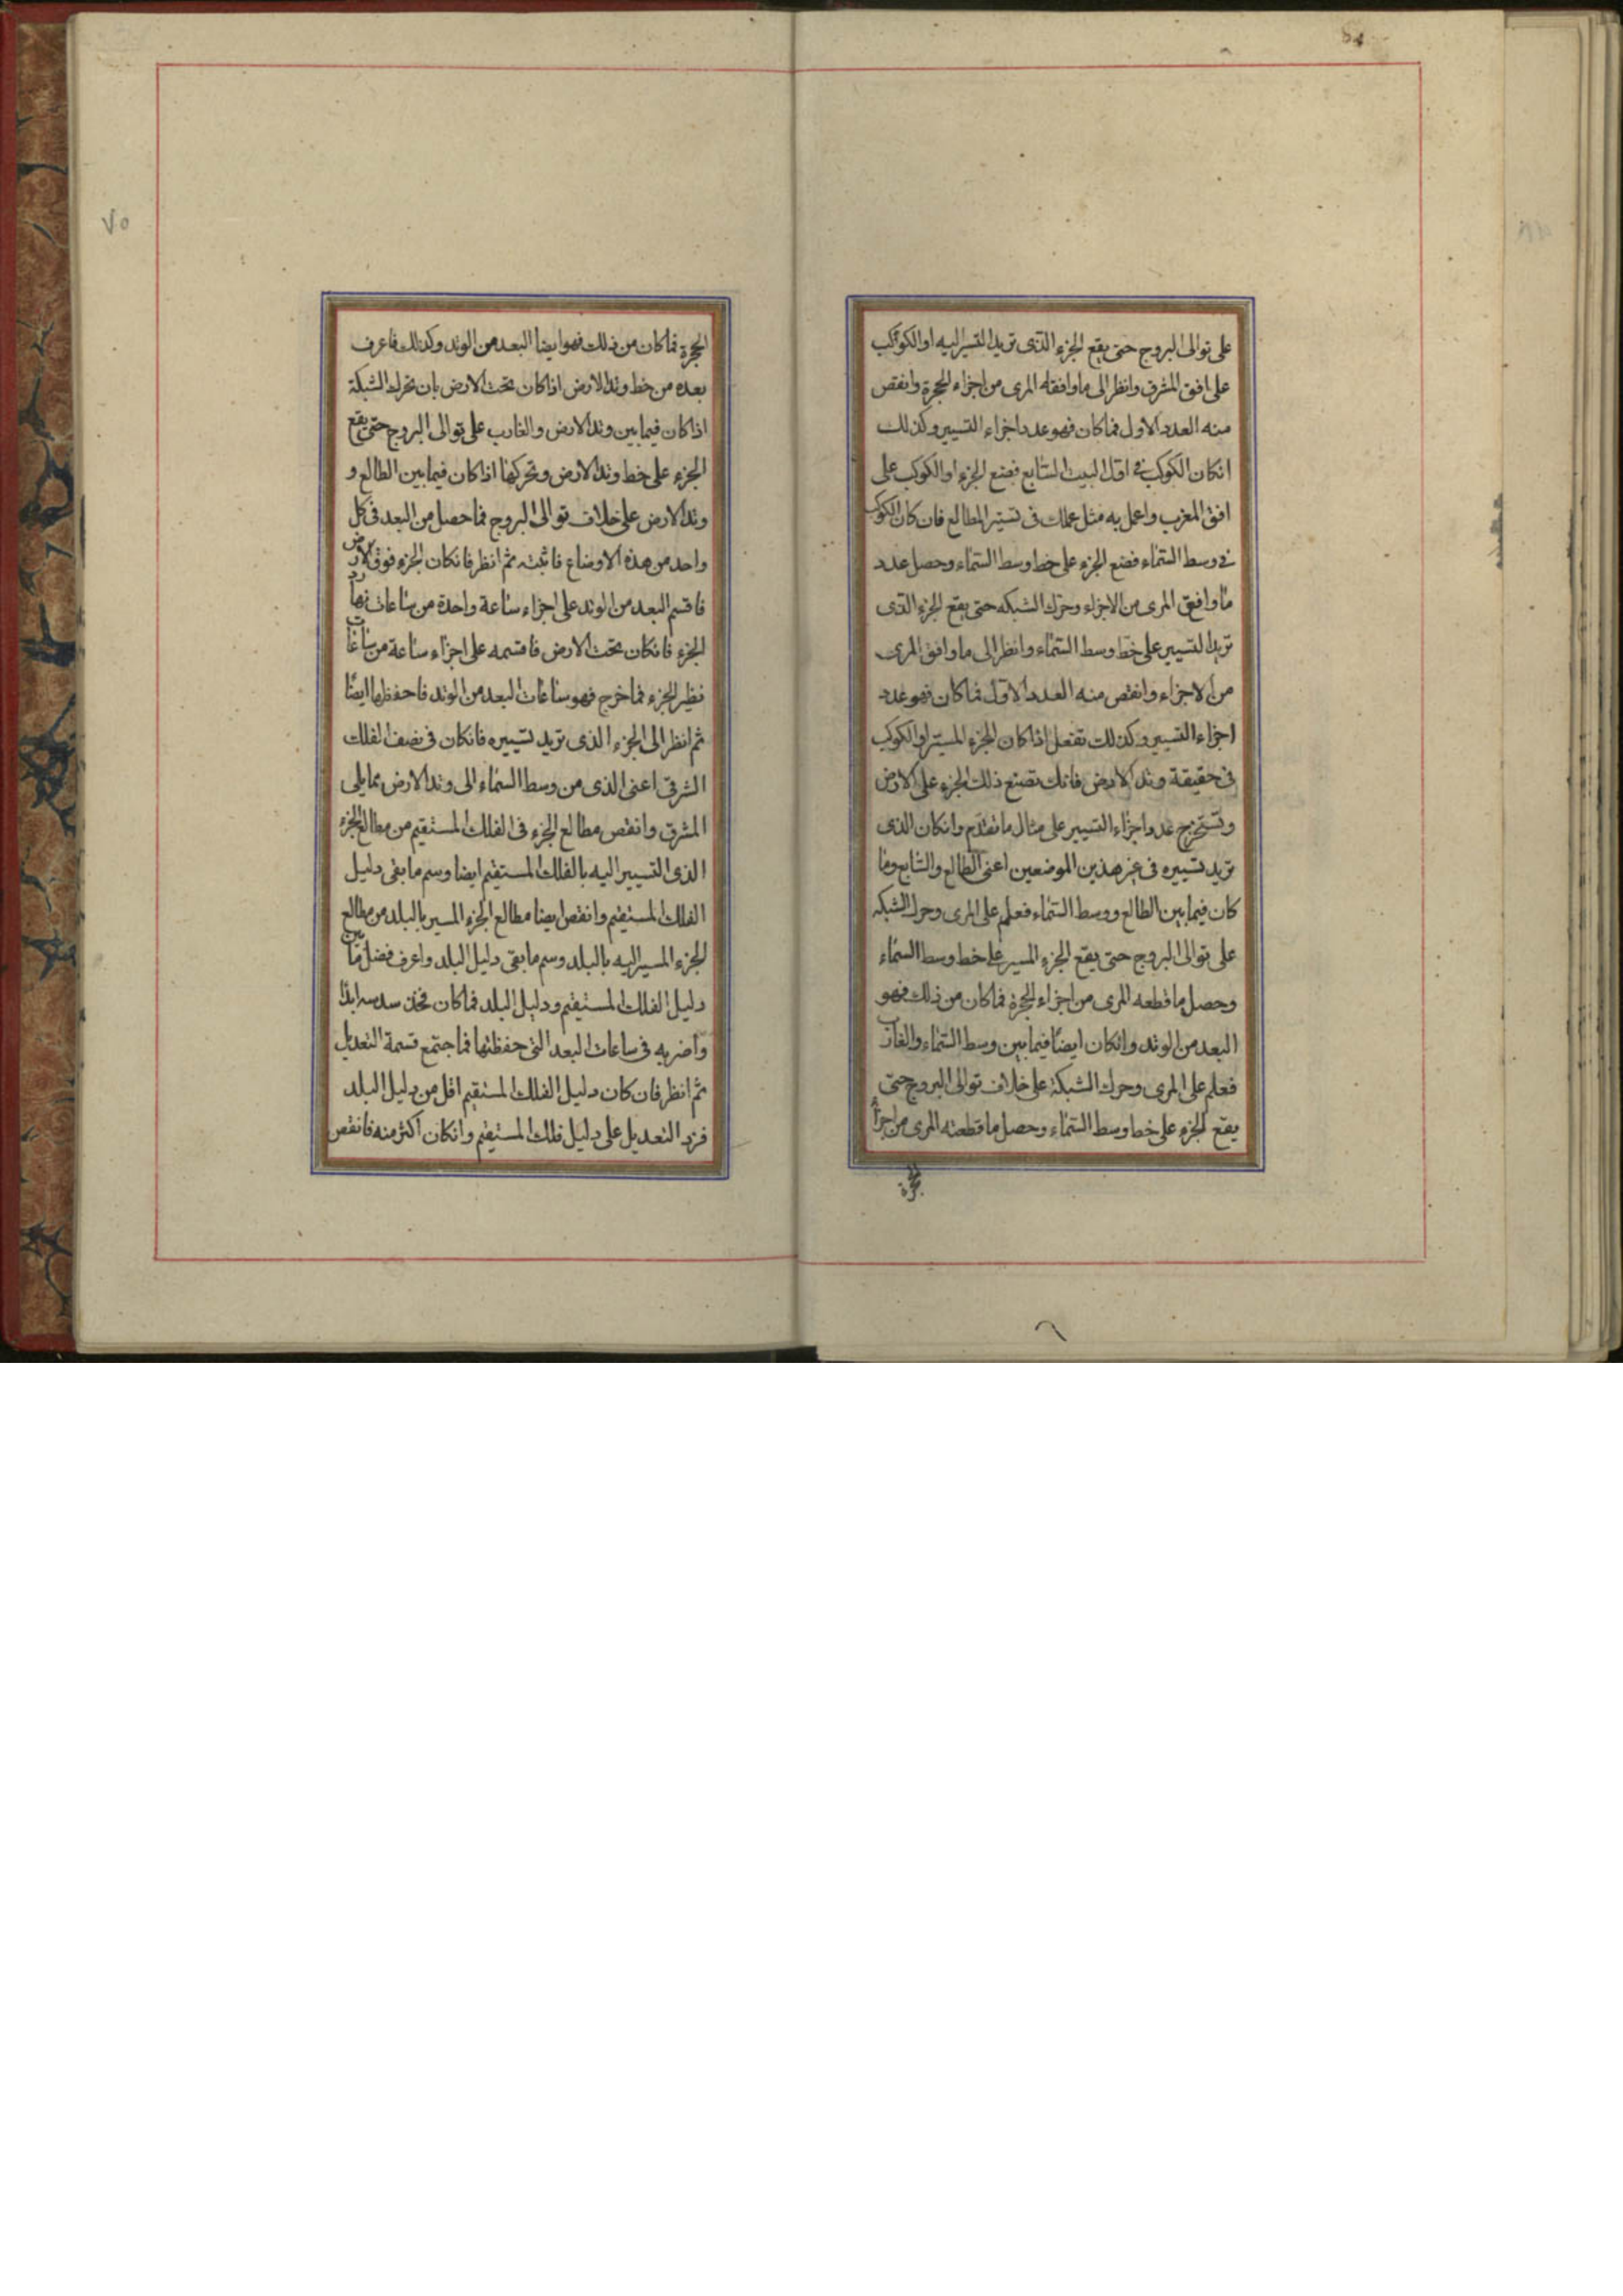 على توالى البروج حتى يقع الجزء الذى تريد التسير اليه او الكوكب
على افق المشرق وانظر الى ما وافقه المرى من اجزاء الحجرة وانقص
منه العدد الاول فما كان فهو عدد اجزاء التسيير وكذلك
انكان الكوكب فى اول البيت السابع فضع الجزء او الكوكب على
افق المغرب واعمل به مثل عملك فى تسيير المطالع فان كان الكوكب
فى وسط السماء فضع الجزء على خط وسط السماء وحصل عدد
ما وافق المرى من الاجزاء وحرك الشبكه حتى يقع الجزء الذى
تريد التسيير على خط وسط السماء وانظر الى ما وافق المرى
من الاجزاء وانقص منه العدد الاول فما كان فهو عدد
اجزاء التسيير وكذلك تفعل اذا كان الجزء المسير او الكوكب
فى حقيقة وتد الارض فانك تصنع ذلك الجزء على الارض
وتستخرج عدد اجزاء التسيير على مثال ما تقدم وانكان الذى
تريد تسييره فى غير هذين الموضعين اعنى الطالع والسابع وما
كان فيما بين الطالع ووسط السماء فعلم على المرى وحرك الشبكه
على توالى البروج حتى يقع الجزء المسير على خط وسط السماء
وحصل ما قطعه المرى من اجزاء الحجرة فما كان من ذلك فهو
البعد من الوتد وانكان ايضا فيما بين وسط السماء والغارب
فعلم على المرى وحرك الشبكة على خلاف توالى البروج حتى
يقع الجزء على خط وسط السماء وحصل ما قطعته المرى من اجزاء
الحجرة
٧٥
الحجرة فما كان من ذلك فهو ايضا البعد من الوتد وكذلك فاعرف
بعده من خط وتد الارض اذا كان تحت الارض بان تحرك الشبكة
اذا كان فيما بين وتد الارض والغارب على توالى البروج حتى يقع
الجزء على خط وتد الارض وتحركها اذا كان فيما بين الطالع و
وتد الارض على خلاف توالى البروج فما حصل من البعد فى كل
واحد من هذه الاوضاع فاثبته ثم انظر فانكان الجزء فوق الارض
فاقسم البعد من الوتد على اجزاء ساعة واحدة من ساعات نهار
الجزء فانكان تحت الارض فاقسمه على اجزاء ساعة من ساعات
نظير الجزء فما خرج فهو ساعات البعد من الوتد فاحفظها ايضا
ثم انظر الى الجزء الذى تريد تسييره فانكان فى نصف الفلك
الشرقى اعنى الذى من وسط السماء الى وتد الارض مما يلى
المشرق وانقص مطالع الجزء فى الفلك المستقيم من مطالع الجزء
الذى التسيير اليه بالفلك المستقيم ايضا وسم ما بقى دليل
الفلك المستقيم وانقص ايضا مطالع الجزء المسير بالبلد من مطالع
الجزء المسير اليه بالبلد وسم ما بقى دليل البلد واعرف فضل ما بين
دليل الفلك المستقيم ودليل البلد فما كان فخذ سدسه ابدا
واضربه فى ساعات البعد التى حفظتها فما اجتمع قسمة التعديل
ثم انظر فان كان دليل الفلك المستقيم اقل من دليل البلد
فزد التعديل على دليل فلك المستقيم وانكان اكثر منه فانقص